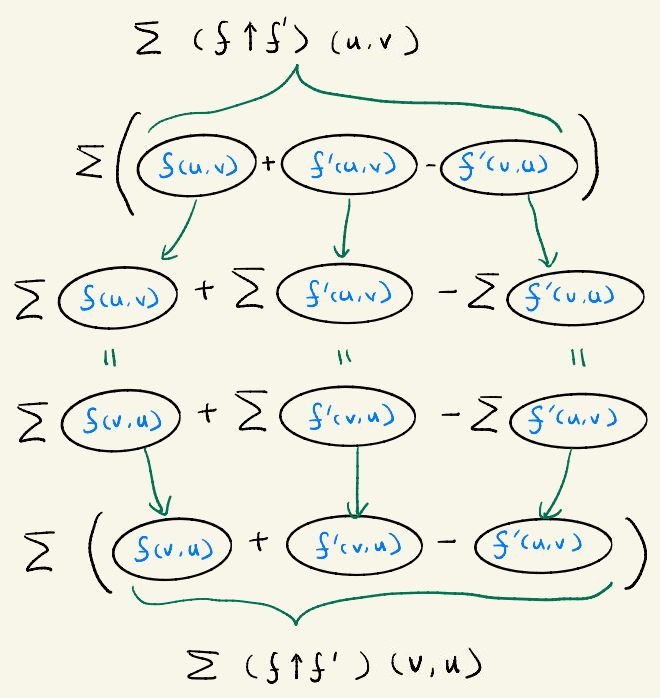 Σ (f↑f') (u,v)
Σ ( f(u,v) + f'(u,v) - f'(v,u) )
Σ f(u,v) + Σ f'(u,v) - Σ f'(v,u)
= = =
Σ f(v,u) + Σ f'(v,u) - Σ f'(u,v)
Σ ( f(v,u) + f'(v,u) - f'(u,v) )
Σ (f↑f') (v,u)